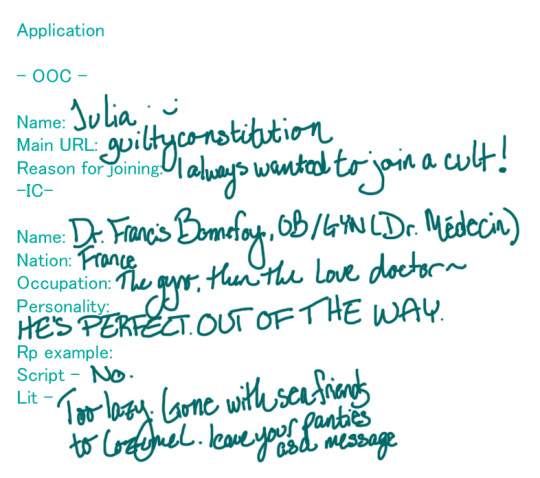 Application
- OOC -
Name: Julia :)
Main URL: guiltyconstitution
Reason for joining: I always wanted to join a cult!
-IC-
Name: Dr. Francis Bonnefoy, OB/GYN (Dr. Médecin)
Nation: France
Occupation: The gyno, then the love doctor~
Personality:
HE'S PERFECT. OUT OF THE WAY.
Rp example:
Script - No.
Lit - Too lazy. Gone with sea friends
to Cozumel. leave your panties
as a message